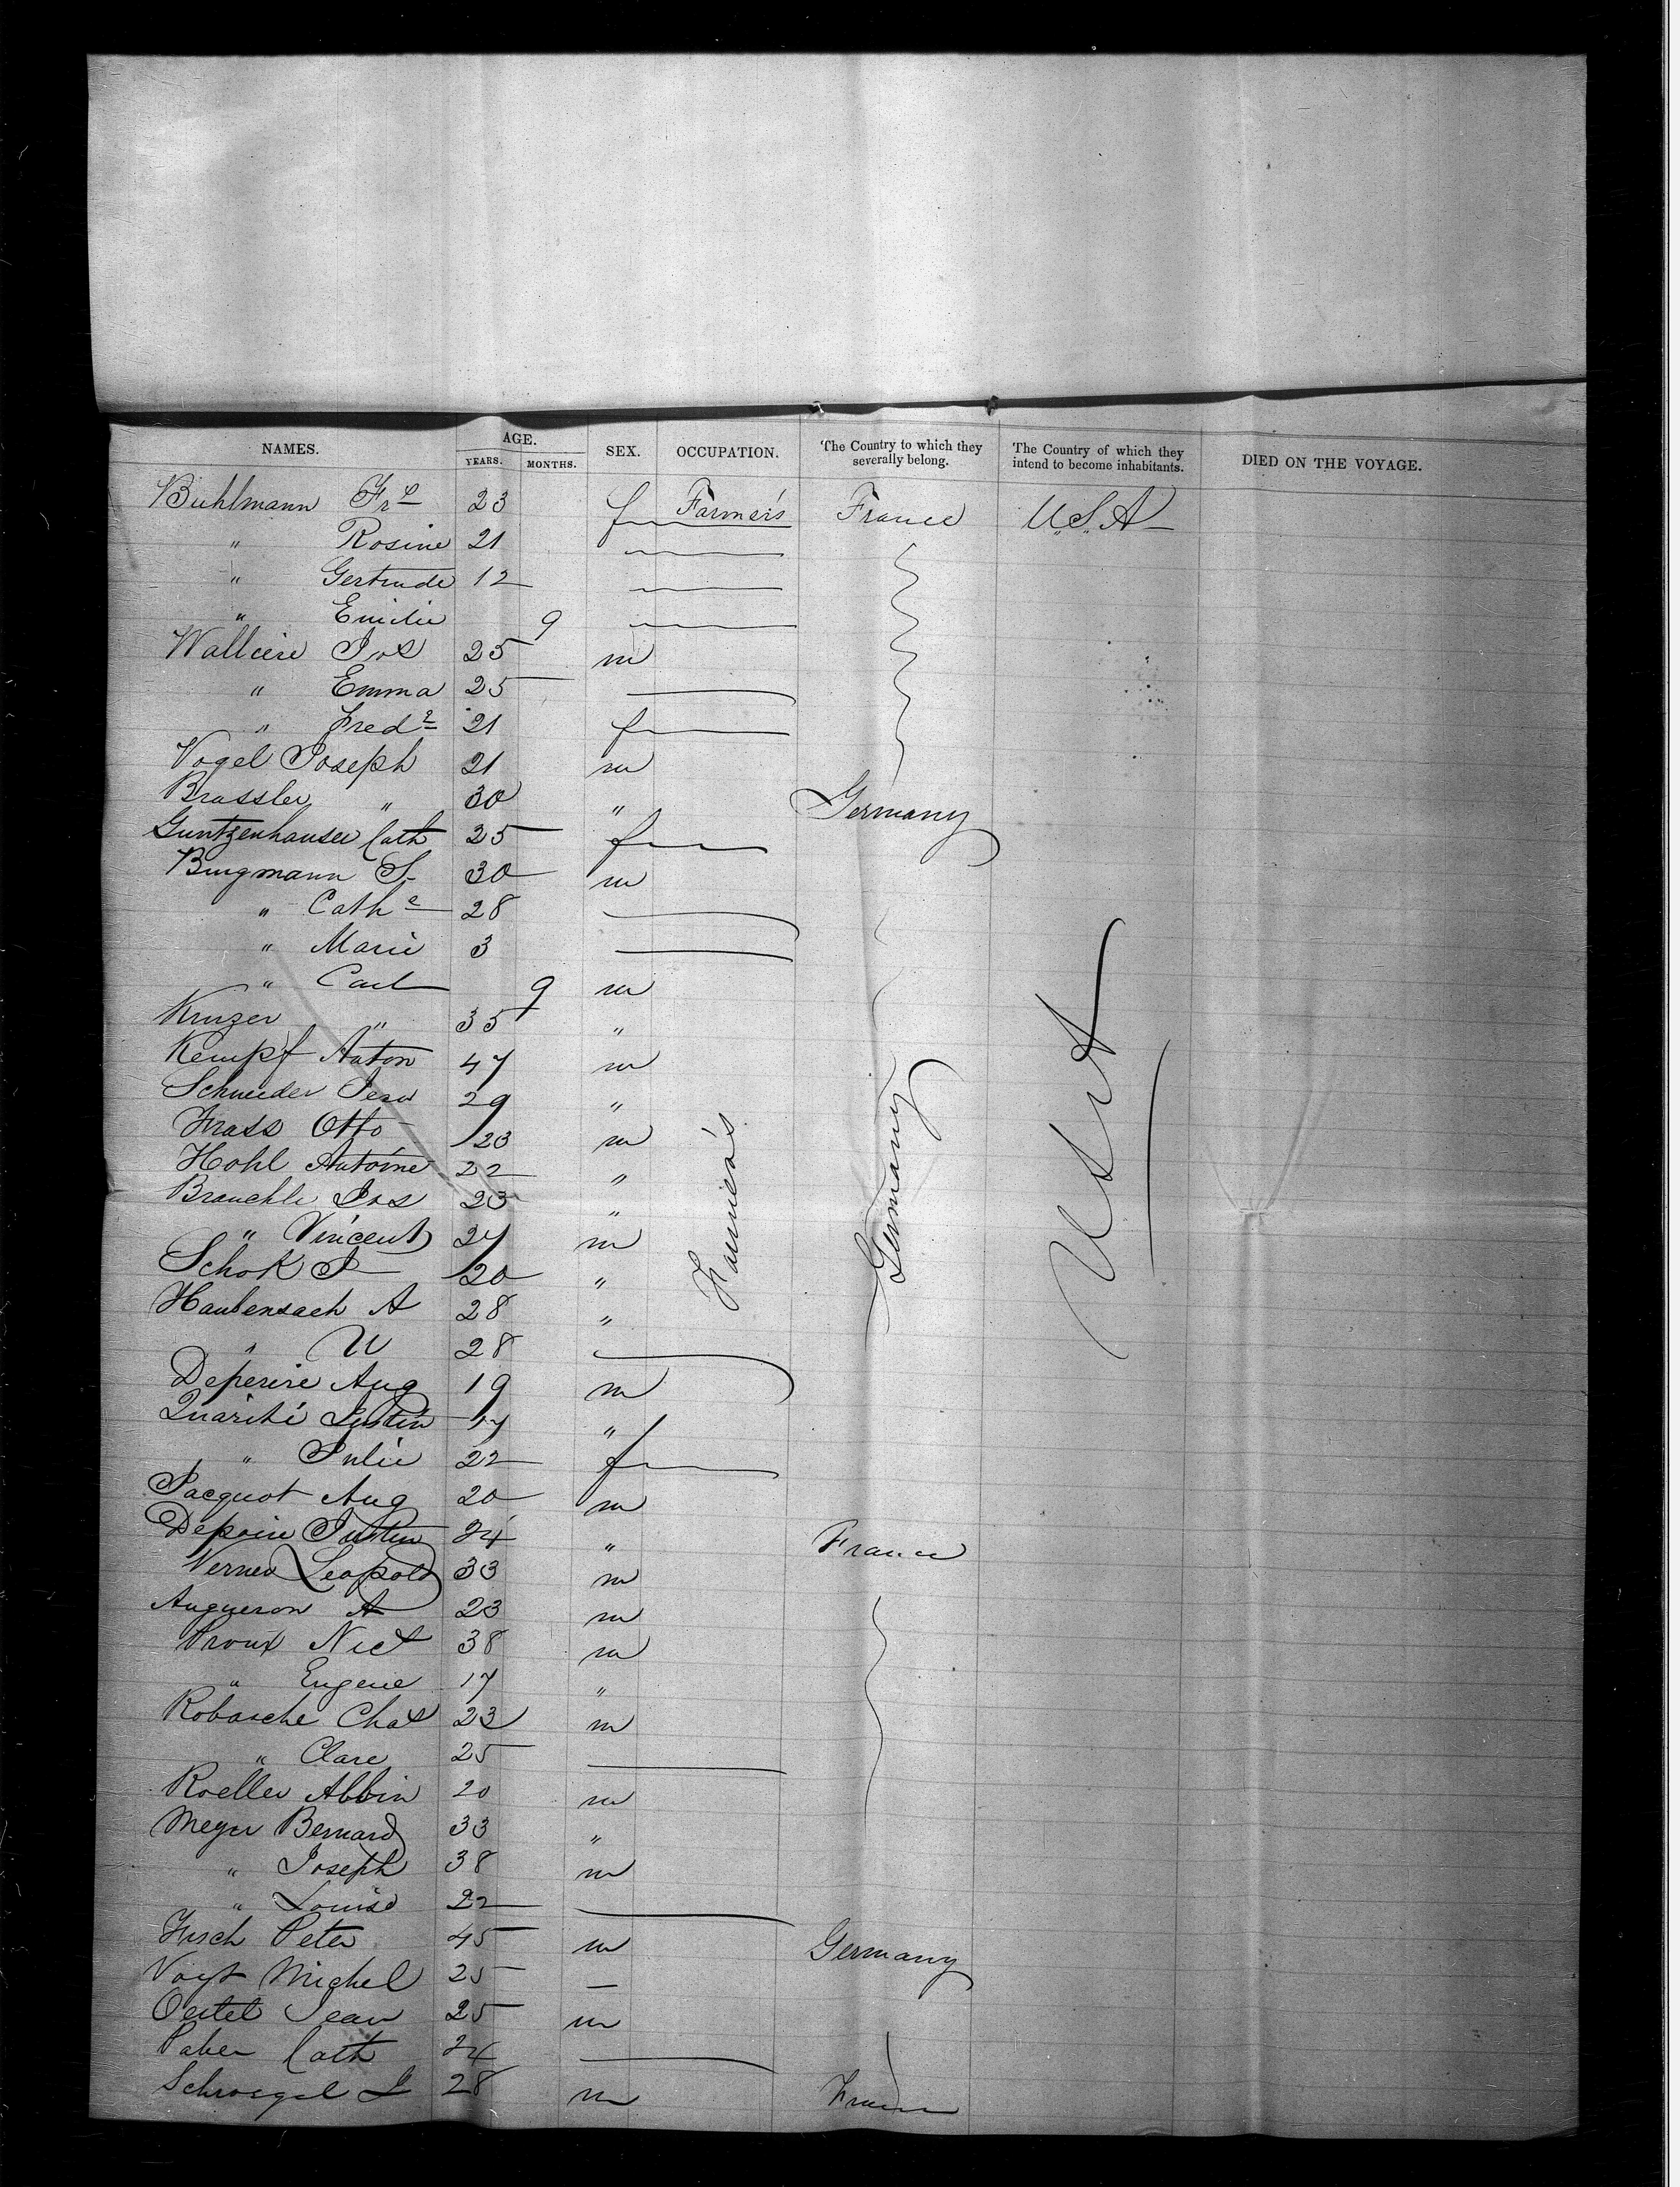 NAMES. AGE. SEX. OCCUPATION. The Country to which they severally belong. The Country of which they intend to become inhabitants. DIED ON THE VOYAGE.
YEARS. MONTHS.
Buhlmann Fre 23 f Farmers France U.S.A
" Rosine 21
" Gertrude 12
" Emilie 9
Walliere Jos 25 m
" Emma 25
" Fred 21 f
Vogel Joseph 21 m
Brassler " 30 " Germany
Guntzenhauser Cath 25 f
Bugmann S 30 m
" Cathe 28
" Marie 3
" Carl 9 m
Kruzer " 35 "
Kempf Anton 47 m
Schneider Jean 29 "
Frass Otto 23 m
Hohl Antoine 22 "
Brauchle Jos 23 "
" Vincent 24 m
Schok J 20 "
Haubensach A 28 "
" W 28
Farmers Germany USA
Deperire Aug 19 m
Justin 17 "
" Julie 22 f
Jacquot Aug 20 m
Justin 24 " France
Verner Leopold 33 m
Augueron A 23 m
Proux Nict 38 m
" Eugene 17 "
Robasche Chas 23 m
" Clare 25
Roeller Albin 20 m
Meyer Bernard 33 "
" Joseph 38 m
" Louise 22
Fisch Peter 45 m Germany
Voyt Michel 25 —
Oertel Jean 25 m
Paber Cath 24
Schroegel J 28 m France